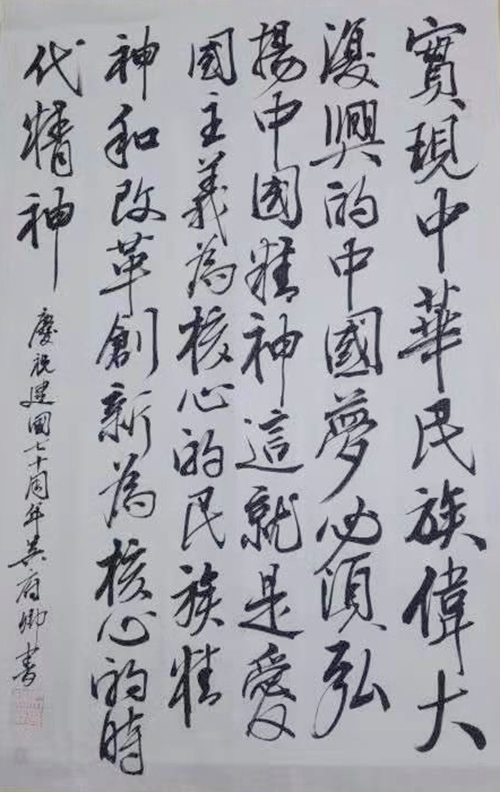 實現中華民族偉大
復興的中國夢必須弘
揚中國精神這就是愛
國主義為核心的民族精
神和改革創新為核心的時
代精神
慶祝建國七十周年吳府卿書